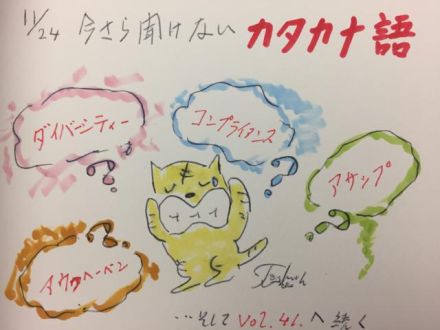 11/24 今さら聞けない カタカナ語
ダイバーシティー
コンプライアンス
アサップ
アウフヘーベン
…そして Vol.41.へ続く